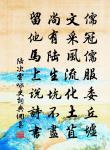 儒冠儒服委丘墟
文采風流化土苴
尚有陸生坑不盡
留他馬上說詩書